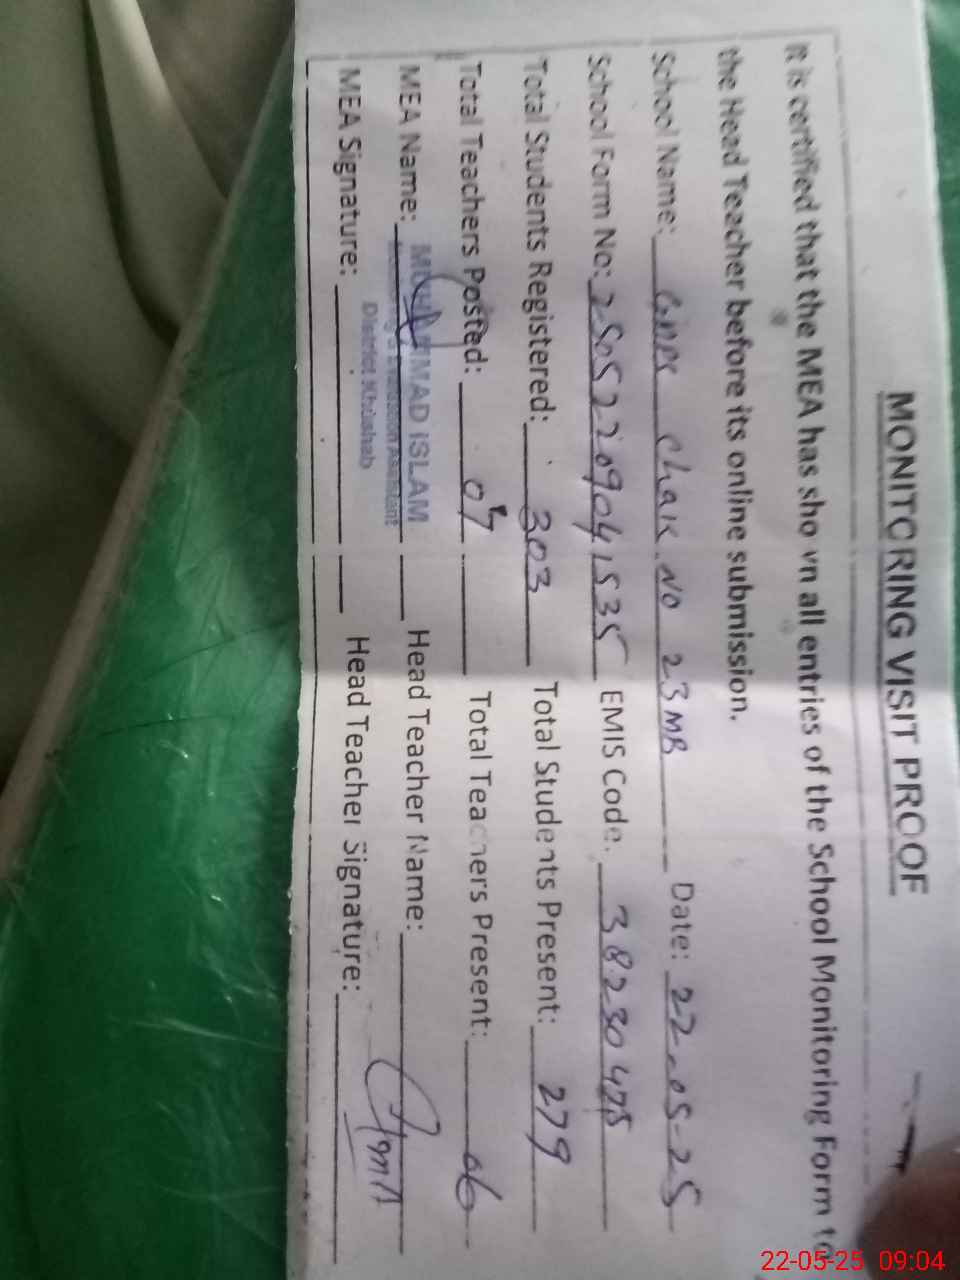 MONITORING VISIT PROOF
It is certified that the MEA has shown all entries of the School Monitoring Form to
the Head Teacher before its online submission.
School Name: GMPS Chak No 23 MB Date: 22-05-25
School Form No: 25052209041535 EMIS Code: 38230475
Total Students Registered: 303 Total Students Present: 279
Total Teachers Posted: 07 Total Teachers Present: 06
MEA Name: MUHAMMAD ISLAM Head Teacher Name:
Monitoring & Evaluation Assistant
District Khushab
MEA Signature: Head Teacher Signature:
22-05-25 09:04